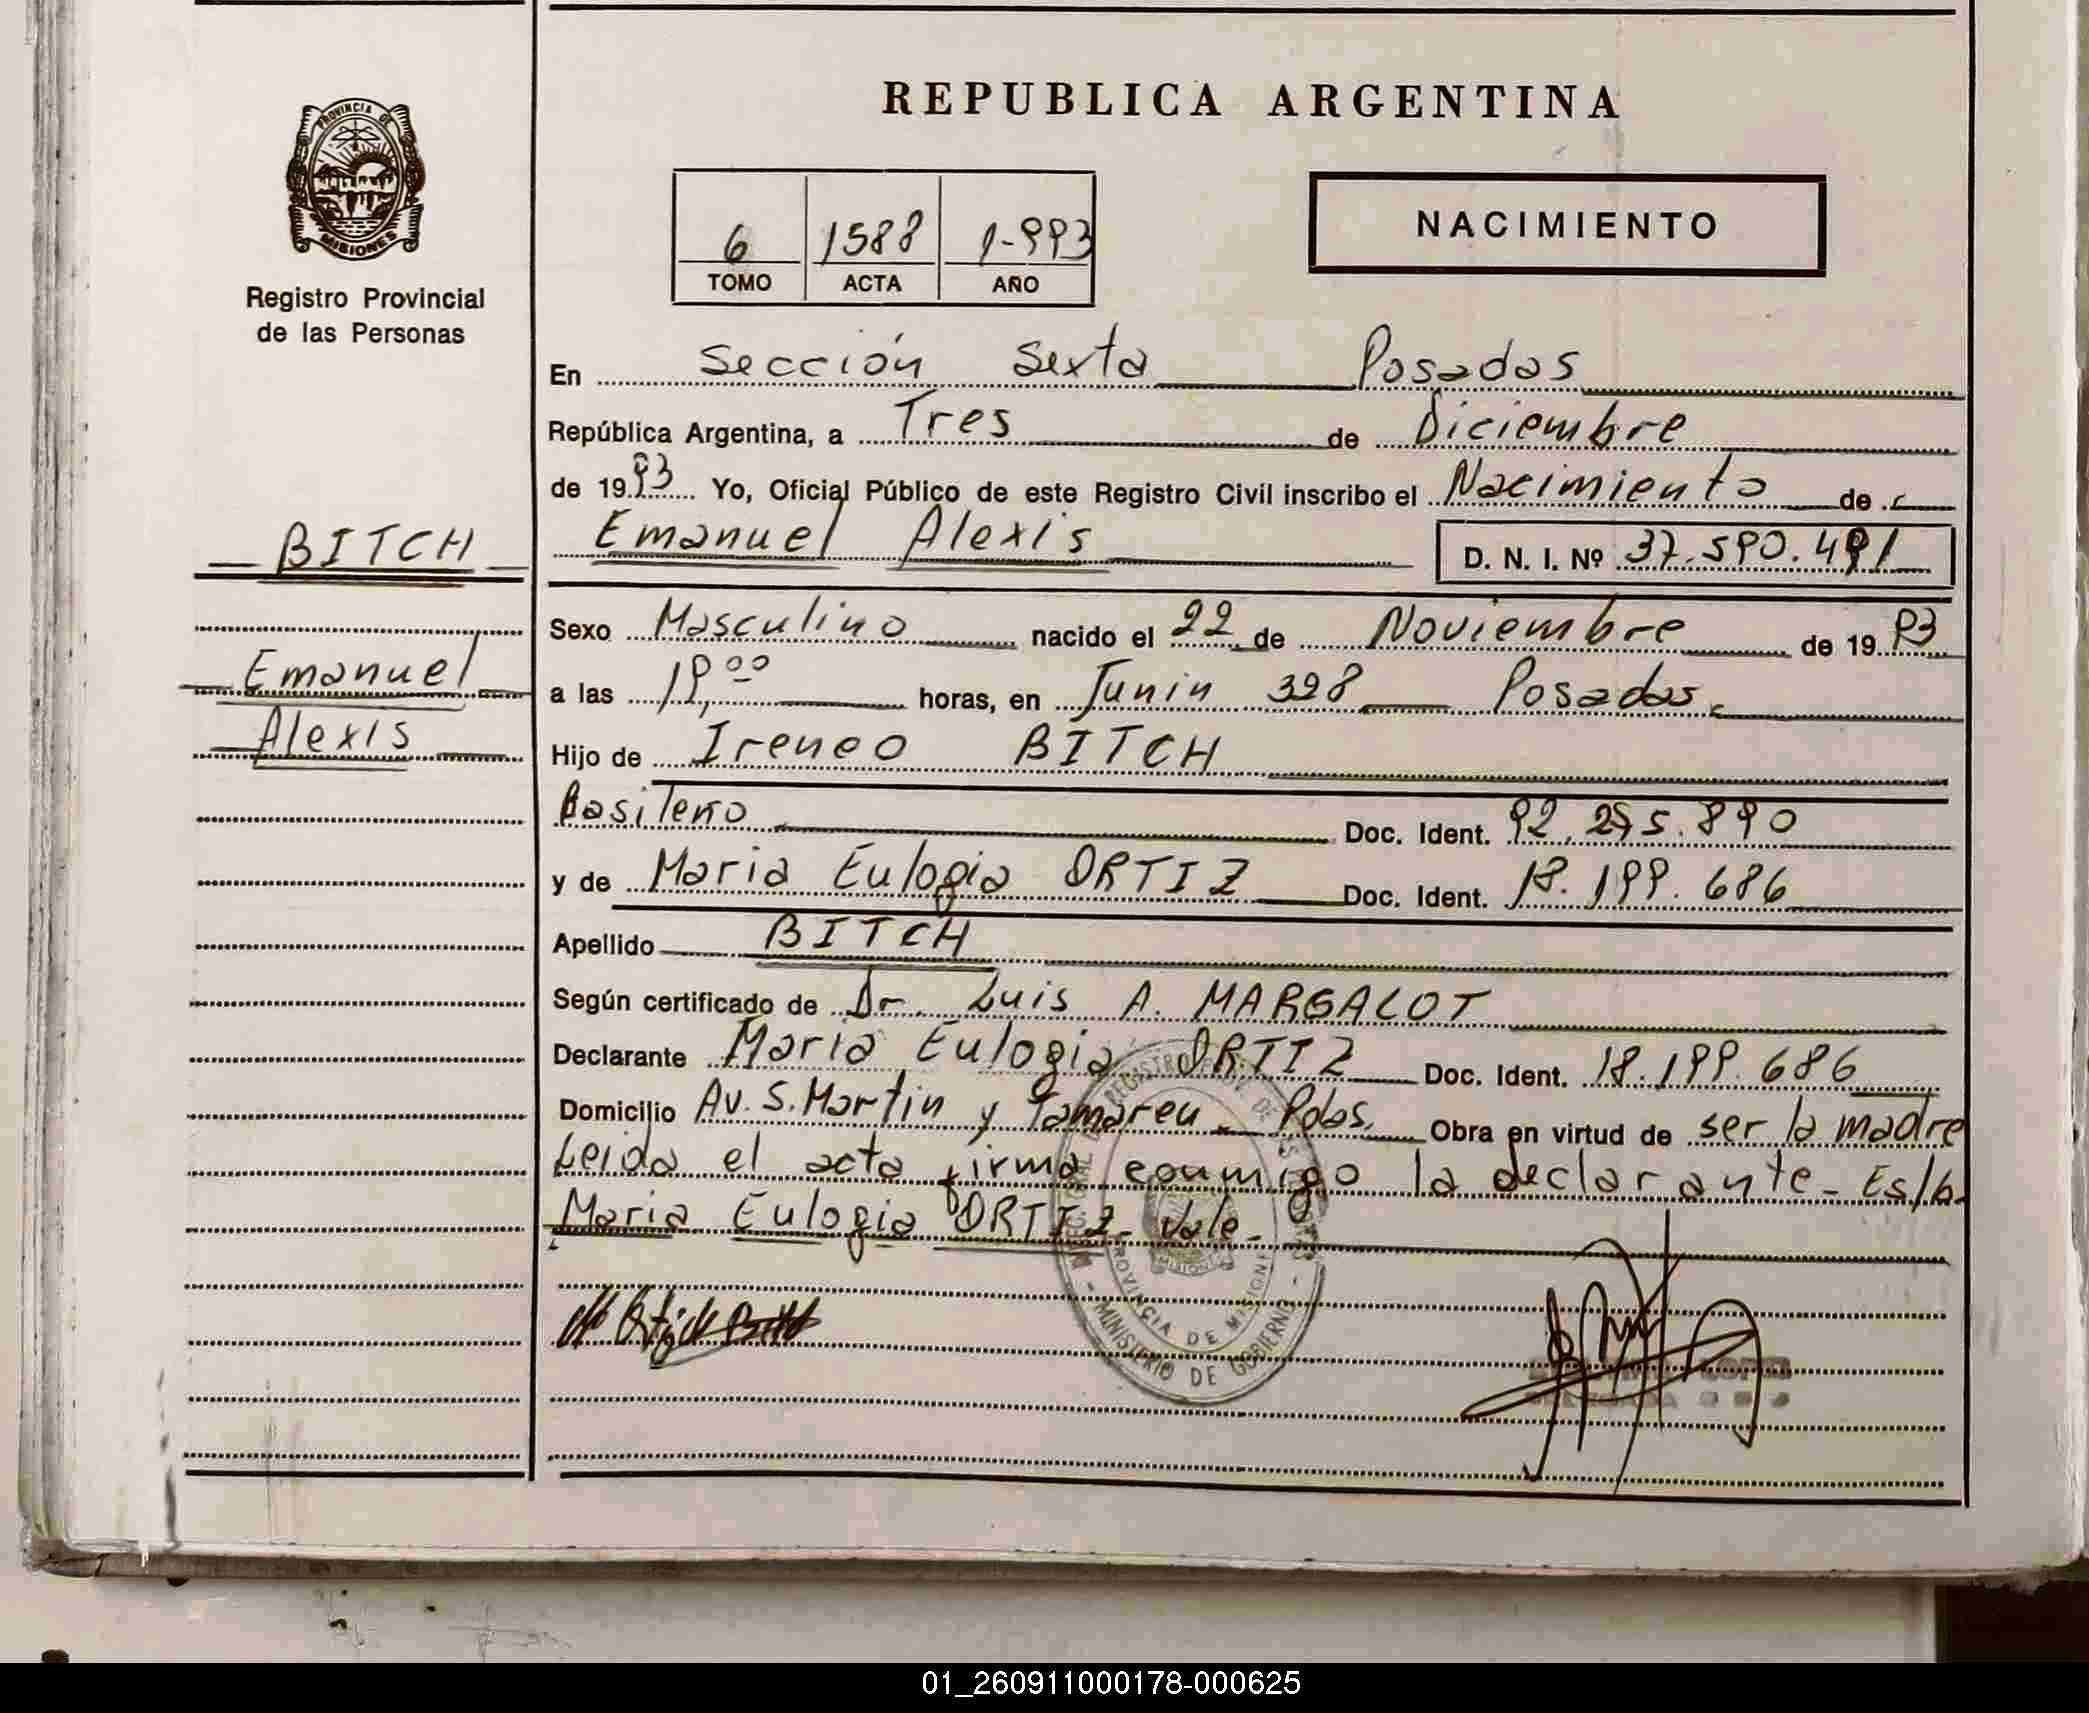 REPUBLICA ARGENTINA
PROVINCIA DE
MISIONES
Registro Provincial
de las Personas
6 1588 1-993
TOMO ACTA AÑO
NACIMIENTO
En Sección Sexta Posadas
República Argentina, a Tres de Diciembre
de 1993 Yo, Oficial Público de este Registro Civil inscribo el Nacimiento de
BITCH
Emanuel Alexis D. N. I. Nº 37.590.491
Sexo Masculino nacido el 22 de Noviembre de 1993
Emanuel
a las 19,00 horas, en Junin 398 Posadas
Alexis
Hijo de Ireneo BITCH
Doc. Ident. 92.295.890
y de Maria Eulogia ORTIZ Doc. Ident. 18.199.686
Apellido BITCH
Según certificado de Dr. Luis A. MARGALOT
Declarante Maria Eulogia ORTIZ Doc. Ident. 18.199.686
Domicilio Av. S. Martin y Tamareu Pdas. Obra en virtud de ser la madre
Leida el acta firma conmigo la declarante - Es/b.
Maria Eulogia ORTIZ - Vale -
PROVINCIA DE MISIONES
MINISTERIO DE GOBIERNO
01_260911000178-000625